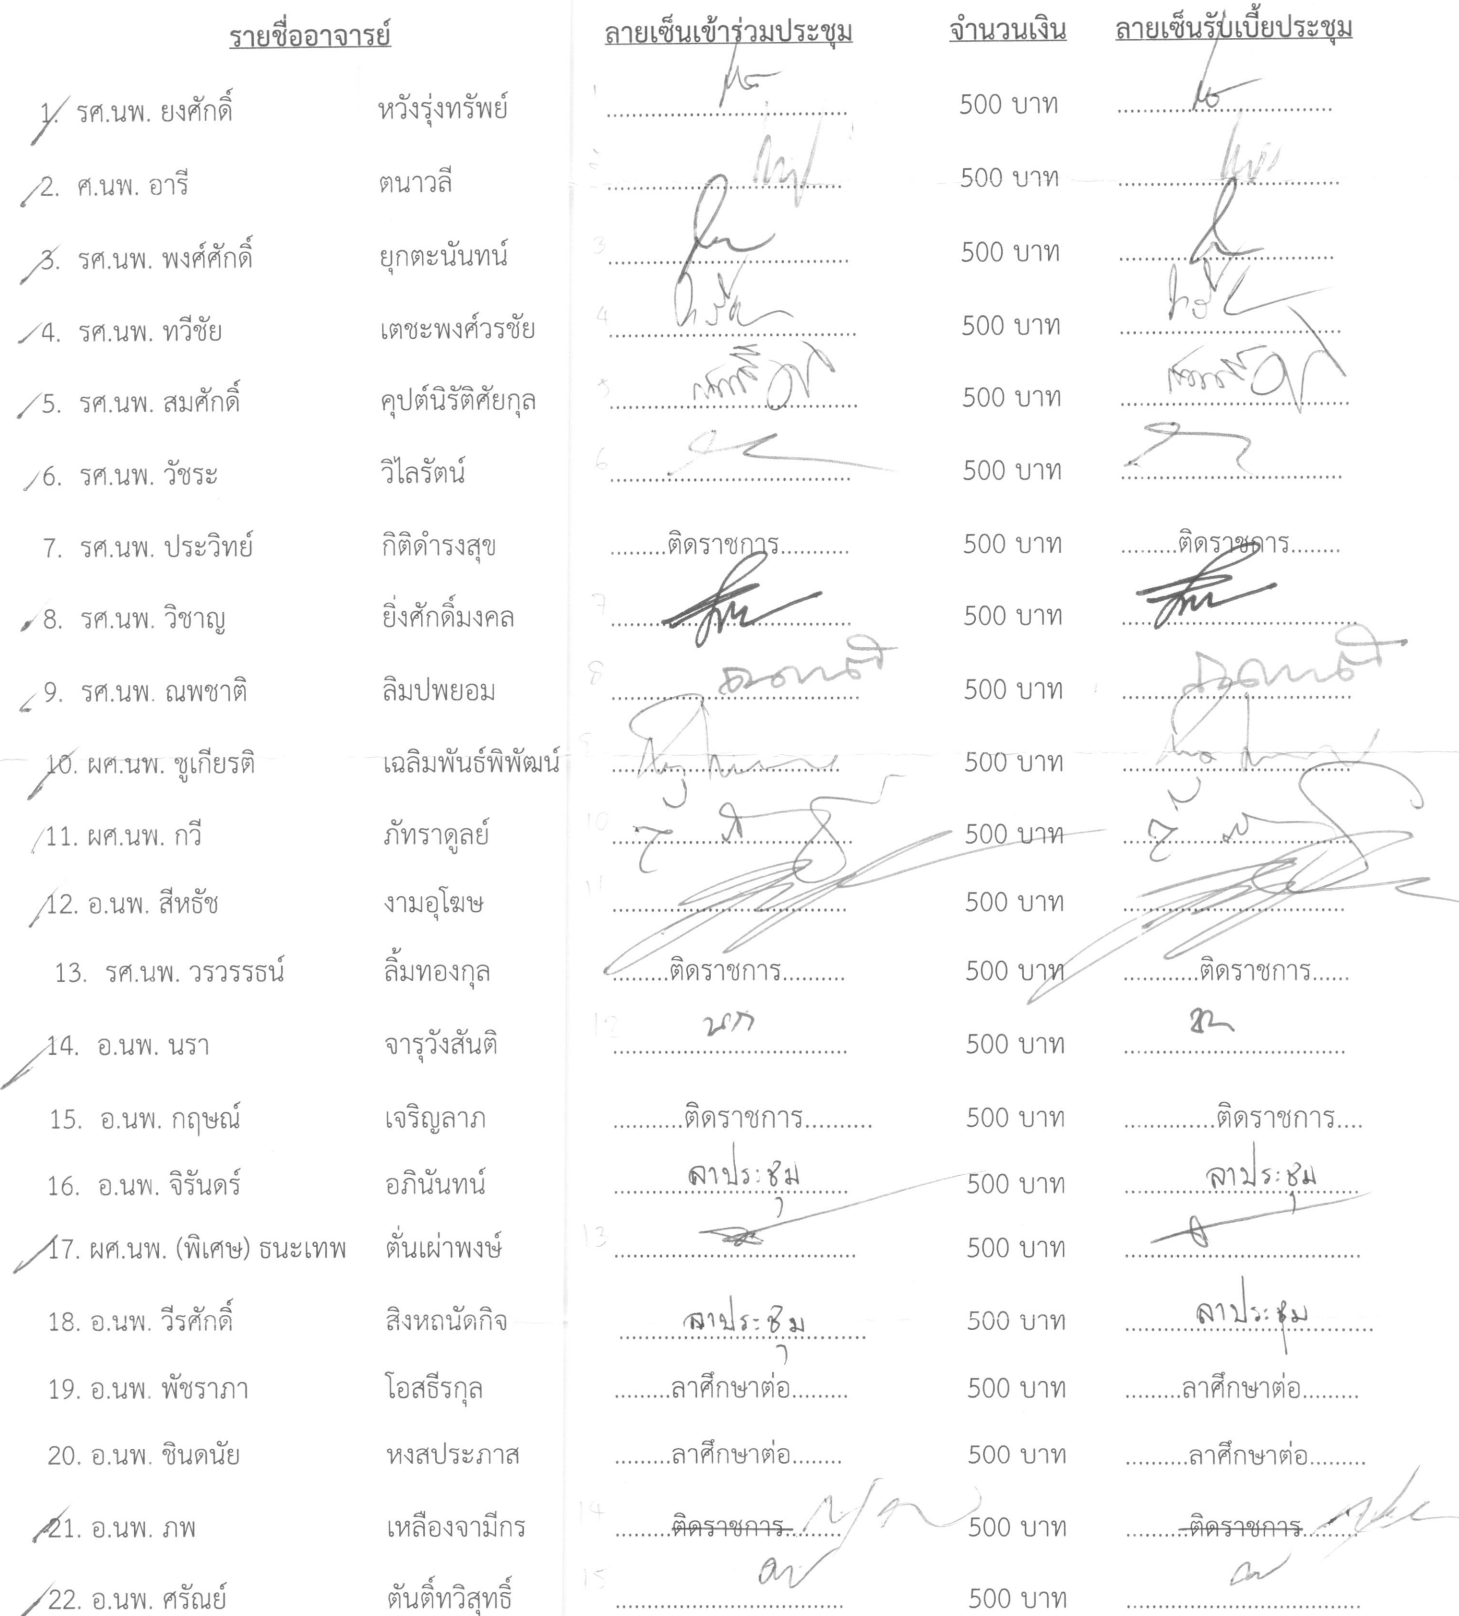 รายชื่ออาจารย์ ลายเซ็นเข้าร่วมประชุม จำนวนเงิน ลายเซ็นรับเบี้ยประชุม
1. รศ.นพ. ยงศักดิ์ หวังรุ่งทรัพย์ 1 ........ 500 บาท ........
2. ศ.นพ. อารี ตนาวลี 2 ........ 500 บาท ........
3. รศ.นพ. พงศ์ศักดิ์ ยุกตะนันทน์ 3 ........ 500 บาท ........
4. รศ.นพ. ทวีชัย เตชะพงศ์วรชัย 4 ........ 500 บาท ........
5. รศ.นพ. สมศักดิ์ คุปต์นิรัติศัยกุล 5 ........ 500 บาท ........
6. รศ.นพ. วัชระ วิไลรัตน์ 6 ........ 500 บาท ........
7. รศ.นพ. ประวิทย์ กิติดำรงสุข ........ติดราชการ.......... 500 บาท ........ติดราชการ.......
8. รศ.นพ. วิชาญ ยิ่งศักดิ์มงคล 7 ........ 500 บาท ........
9. รศ.นพ. ณพชาติ ลิมปพยอม 8 ........ 500 บาท ........
10. ผศ.นพ. ชูเกียรติ เฉลิมพันธ์พิพัฒน์ 9 ........ 500 บาท ........
11. ผศ.นพ. กวี ภัทราดูลย์ 10 ........ 500 บาท ........
12. อ.นพ. สีหธัช งามอุโฆษ 11 ........ 500 บาท ........
13. รศ.นพ. วรวรรธน์ ลิ้มทองกุล ........ติดราชการ......... 500 บาท ...........ติดราชการ......
14. อ.นพ. นรา จารุวังสันติ 12 ........ 500 บาท ........
15. อ.นพ. กฤษณ์ เจริญลาภ ..........ติดราชการ.......... 500 บาท .............ติดราชการ....
16. อ.นพ. จิรันดร์ อภินันทน์ ลาประชุม 500 บาท ลาประชุม
17. ผศ.นพ. (พิเศษ) ธนะเทพ ตั่นเผ่าพงษ์ 13 ........ 500 บาท ........
18. อ.นพ. วีรศักดิ์ สิงหถนัดกิจ ลาประชุม 500 บาท ลาประชุม
19. อ.นพ. พัชราภา โอสธีรกุล ........ลาศึกษาต่อ........ 500 บาท ........ลาศึกษาต่อ........
20. อ.นพ. ชินดนัย หงสประภาส ........ลาศึกษาต่อ....... 500 บาท .........ลาศึกษาต่อ........
21. อ.นพ. ภพ เหลืองจามีกร 14 ........ติดราชการ....... 500 บาท .........ติดราชการ
22. อ.นพ. ศรัณย์ ตันติ์ทวิสุทธิ์ 15 ........ 500 บาท ........